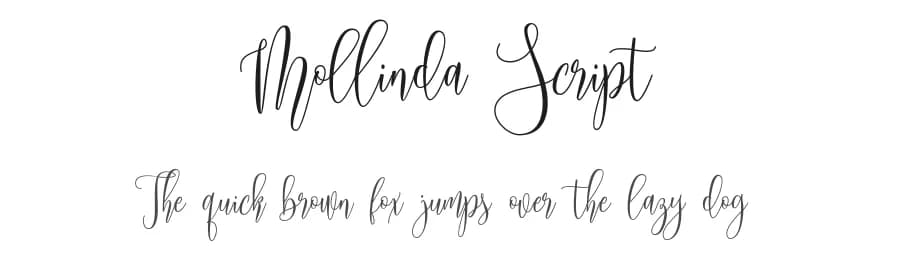 Mollinda Script
The quick brown fox jumps over the lazy dog